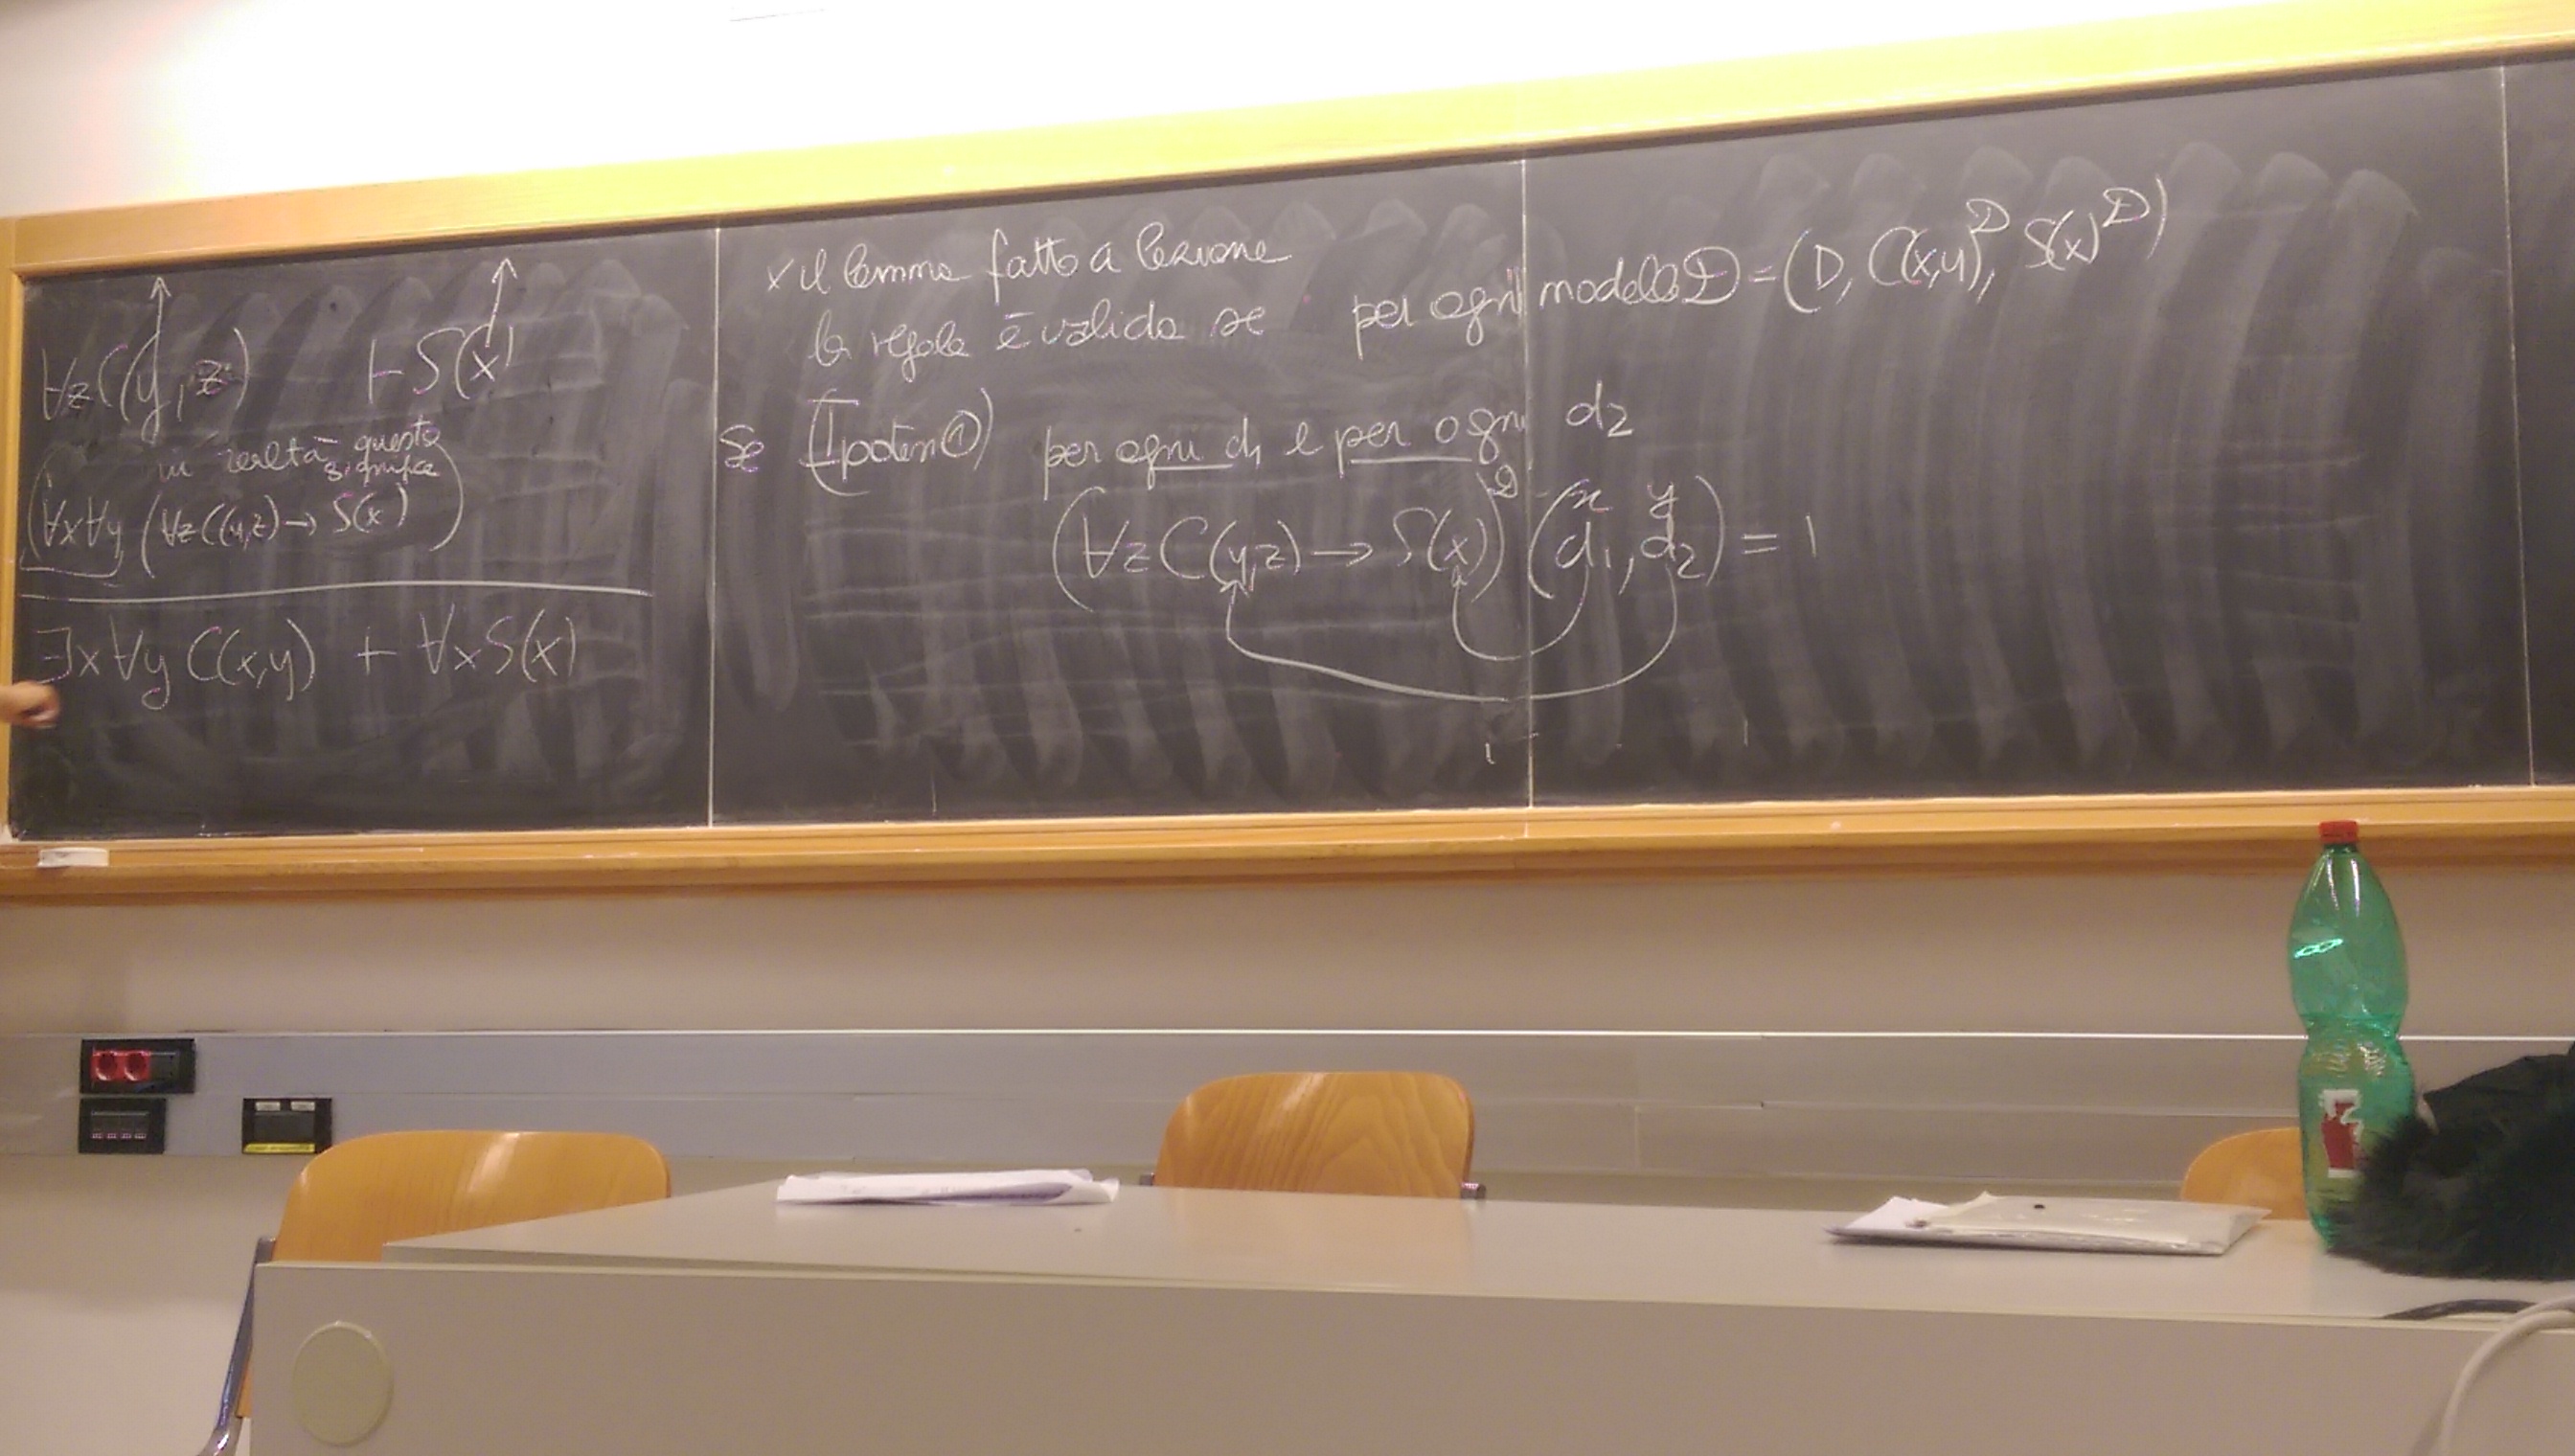 ∀z C(y,z) ⊢ S(x)
in realtà questo
significa
(∀x∀y (∀z C(y,z) → S(x))
∃x ∀y C(x,y) ⊢ ∀x S(x)
x il lemma fatto a lezione
la regola è valida se per ogni modello D = (D, C(x,y)^D, S(x)^D)
Se (Ipotesi ①) per ogni d1 e per ogni d2
(∀z C(y,z) → S(x))^D (d1, d2) = 1
x y